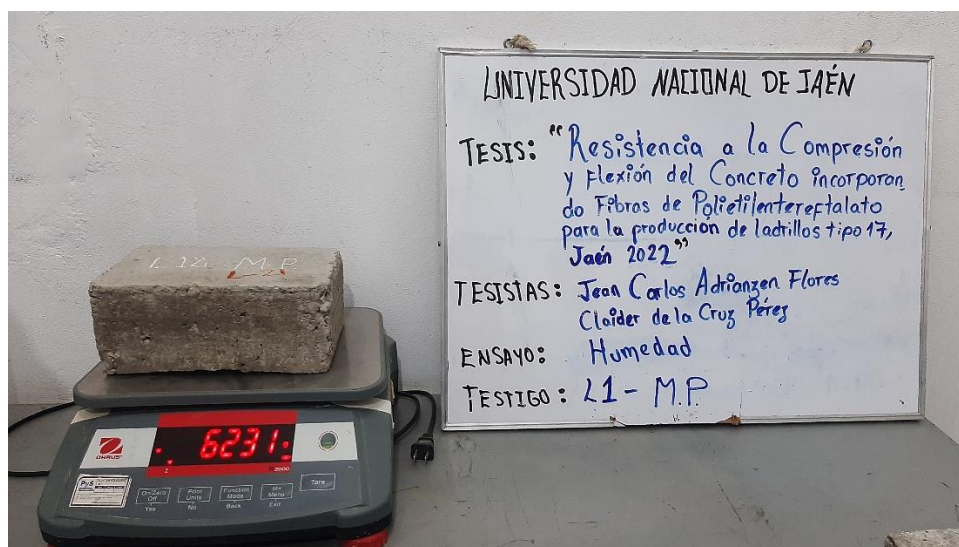 UNIVERSIDAD NACIONAL DE JAÉN
TESIS: "Resistencia a la Compresión
y Flexión del Concreto incorporan
do Fibras de Polietilentereftalato
para la producción de ladrillos tipo 17,
Jaén 2022"
TESISTAS: Jean Carlos Adrianzen Flores
Claider de la Cruz Pérez
ENSAYO: Humedad
TESTIGO: L1 - M.P.
M.P.
OHAUS
6231
PyS
On/Zero
Off
Yes
Print
Units
No
Function
Mode
Back
M+
Menu
Exit
Tare